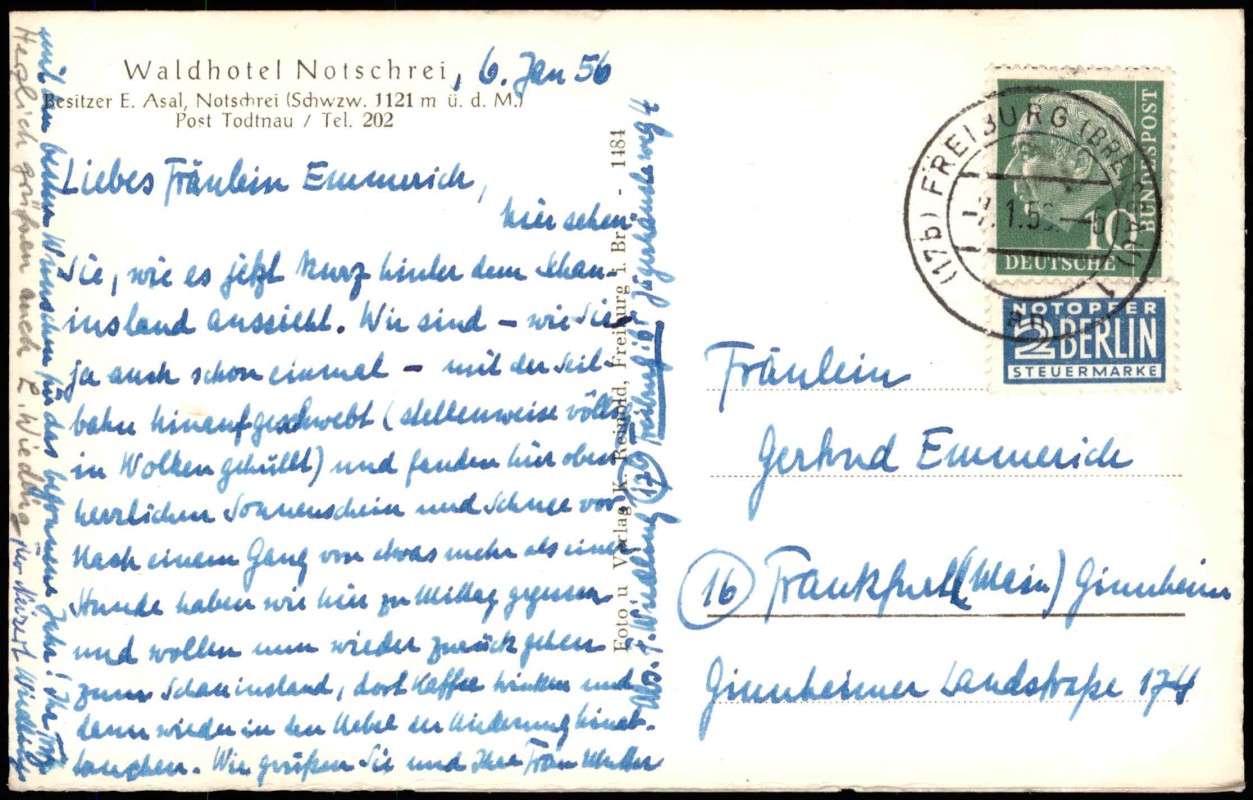 Waldhotel Notschrei, 6. Jan 56
Besitzer E. Asal, Notschrei (Schwzw. 1121 m ü. d. M.)
Post Todtnau / Tel. 202
Liebes Fräulein Emmerich,
hier sehen
Sie, wie es jetzt kurz hinter dem Schau-
insland aussieht. Wir sind – wie Sie
ja auch schon einmal – mit der Seil-
bahn hinaufgeschwebt (stellenweise völlig
in Wolken gehüllt) und fanden hier oben
herrlichen Sonnenschein und Schnee vor.
Nach einem Gang von etwas mehr als einer
Stunde haben wir hier zu Mittag gegessen
und wollen nun wieder zurück gehen
zum Schauinsland, dort Kaffee trinken und
dann wieder in den Nebel der Niederung hinab-
tauchen. Wir grüßen Sie und Ihre Frau Mutter
mit den besten Wünschen für das begonnene Jahr! Ihr
Herzlich grüßen auch E. Wiedling
Foto u. Verlag K. Reinold, Freiburg i. Br. - 1484
Abs. F. Wiedling (17b) Freiburg i Br Jägerhäusleweg
Fräulein
Gertrud Emmerich
(16) Frankfurt (Main) Ginnheim
Ginnheimer Landstraße 174
(17b) FREIBURG (BREISGAU) 1
1.56.
10
DEUTSCHE
BUNDESPOST
NOTOPFER
2 BERLIN
STEUERMARKE